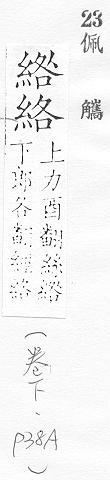 23佩觿
綹絡
上力酉翻絲綹
下郎各翻經絡
(卷下、P38A)